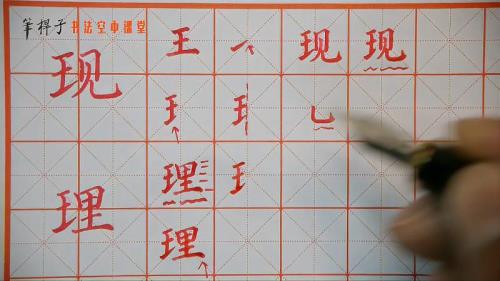 笔杆子书法空中课堂
现 王 一 现 现
王 王 乚
理 理 王
理